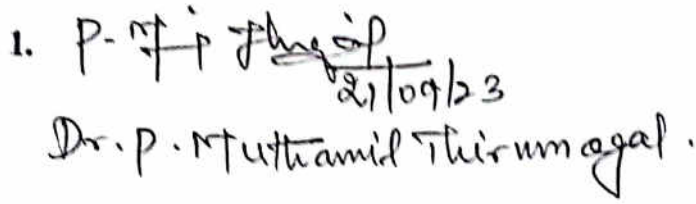 1.
21/09/23
Dr. P. Muthamil Thirumagal.